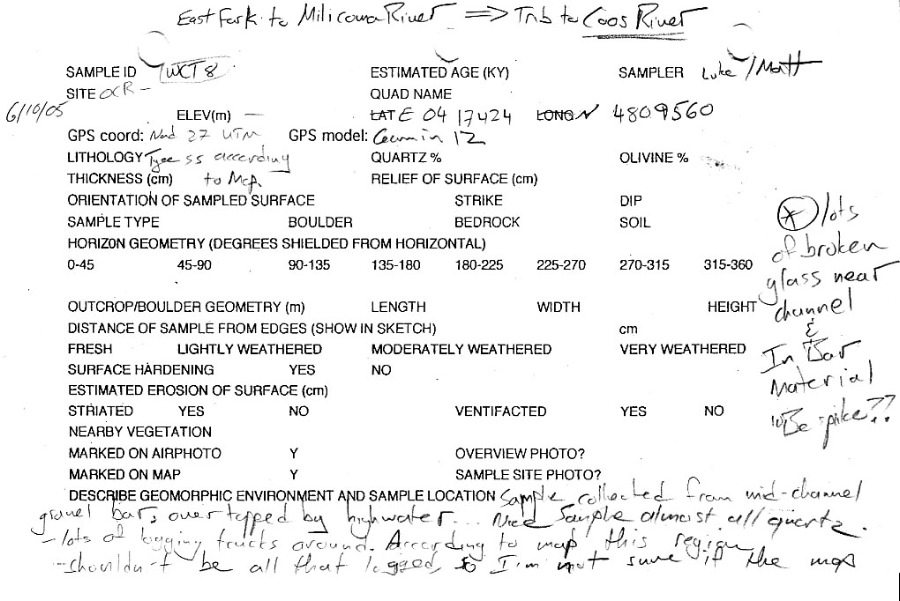 East Fork to Milicoma River ⟹ Trib to Coos River
SAMPLE ID WCT8 ESTIMATED AGE (KY) SAMPLER Luke/Matt
SITE OCR- QUAD NAME
6/10/05
ELEV(m) — LAT E 0417424 LONG N 4809560
GPS coord: Nad 27 UTM GPS model: Garmin 12
LITHOLOGY Tyee ss according QUARTZ % OLIVINE %
THICKNESS (cm) to Map. RELIEF OF SURFACE (cm)
ORIENTATION OF SAMPLED SURFACE STRIKE DIP
SAMPLE TYPE BOULDER BEDROCK SOIL
HORIZON GEOMETRY (DEGREES SHIELDED FROM HORIZONTAL)
0-45 45-90 90-135 135-180 180-225 225-270 270-315 315-360
OUTCROP/BOULDER GEOMETRY (m) LENGTH WIDTH HEIGHT
DISTANCE OF SAMPLE FROM EDGES (SHOW IN SKETCH) cm
FRESH LIGHTLY WEATHERED MODERATELY WEATHERED VERY WEATHERED
SURFACE HARDENING YES NO
ESTIMATED EROSION OF SURFACE (cm)
STRIATED YES NO VENTIFACTED YES NO
NEARBY VEGETATION
MARKED ON AIRPHOTO Y OVERVIEW PHOTO?
MARKED ON MAP Y SAMPLE SITE PHOTO?
* lots
of broken
glass near
channel
&
In Bar
Material
Be spike??
DESCRIBE GEOMORPHIC ENVIRONMENT AND SAMPLE LOCATION Sample collected from mid-channel
gravel bar, overtopped by highwater... Nice Sample almost all quartz.
-lots of logging trucks around. According to map this region
-shouldn't be all that logged, so I'm not sure if the map